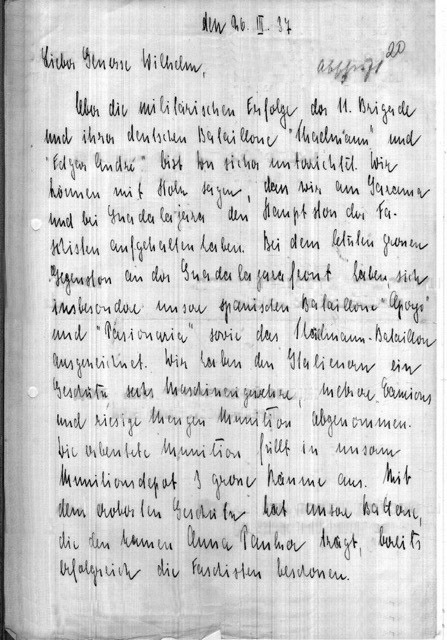 den 26. III. 37
20
Abschrift
Lieber Genosse Wilhelm,
Ueber die militärischen Erfolge der 11. Brigade
und ihrer deutschen Bataillone "Thaelmann" und
"Edgar André" bist Du sicher unterrichtet. Wir
können mit Stolz sagen, dass wir am Jarama
und bei Guadalajara den Hauptstoß der Fa-
schisten aufgehalten haben. Bei dem letzten grossen
Gegenstoss an der Guadalajarafront haben sich
insbesondere unsere spanischen Bataillone "Apoyo"
und "Pasionaria" sowie das Thälmann-Bataillon
ausgezeichnet. Wir haben den Italienern ein
Geschütz, sechs Maschinengewehre, mehrere Camions
und riesige Mengen Munition abgenommen.
Die erbeutete Munition füllt in unserem
Munitionsdepot 3 grosse Räume aus. Mit
dem eroberten Geschütz hat unsere Batterie,
die den Namen Anna Pauker trägt, bereits
erfolgreich die Faschisten beschossen.